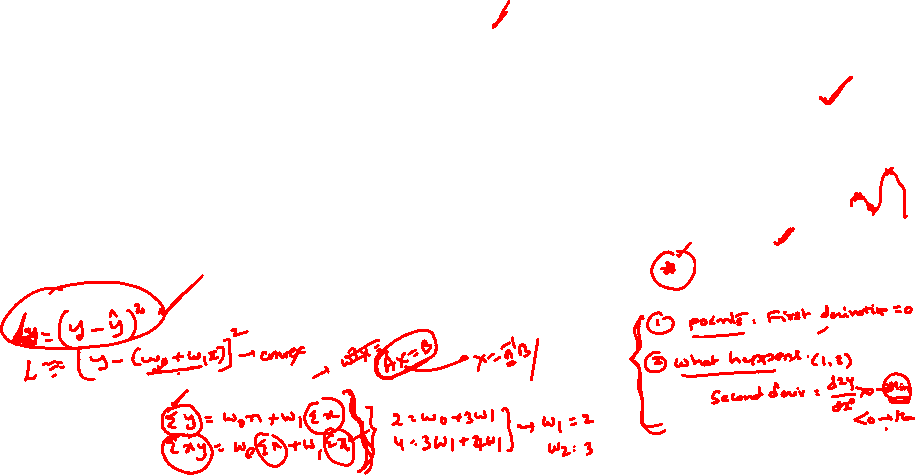 L = (y - ŷ)²
L = [y - (w₀ + w₁x)]² → convex
→ AX = B → X = A⁻¹B
Σy = w₀n + w₁Σx
Σxy = w₀Σx + w₁Σx²
2 = w₀ + 3w₁
4 = 3w₁ + 4w₁
→ w₁ = 2
w₂ = 3
① points : First derivative = 0
② what happens : (1, 3)
Second deriv = d²y/dx² >0 → Min
<0 →